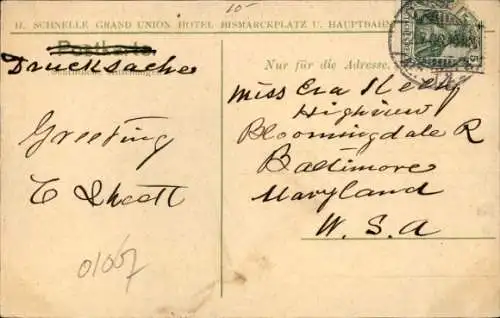 10-
H. SCHNELLE GRAND UNION HOTEL BISMARCKPLATZ U. HAUPTBAHN
Postkarte
Drucksache
Nur für die Adresse.
Miss Eva
Highview
Bloomingdale R
Baltimore
Maryland
W. S. A
Greeting
E
01007